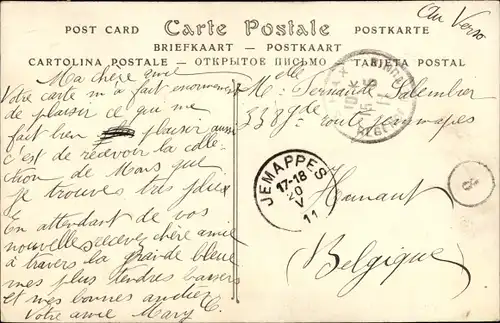 Au Verso
POST CARD Carte Postale POSTKARTE
BRIEFKAART — POSTKAART
CARTOLINA POSTALE — ОТКРЫТОЕ ПИСЬМО — TARJETA POSTAL
Ma chère amie
Votre carte m'a fait enormement
de plaisir ce qui me
fait bien plaisir aussi
c'est de recevoir la colle-
ction de Mars que
je trouves très jolie
En attendant de vos
nouvelles recevez chère amie
à travers la grande bleue
mes plus tendres baisers
et mes bonnes amitiés
Votre amie Mary C.
Melle Fernande Salembier
338 gde route Jemmapes
Hainaut
(Belgique)
JEMAPPES
17-18
20
V
11